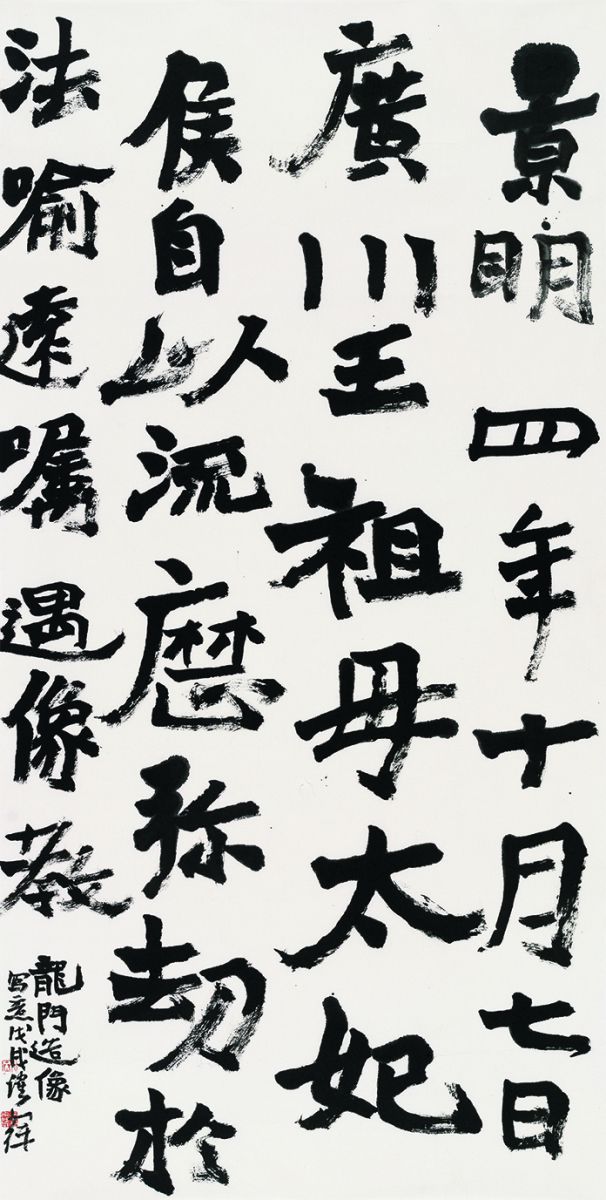 景明四年十月七日
廣川王祖母太妃
侯自以流歷弥劫於
法喻遠囑遇像教
龍門造像
写意戊戌